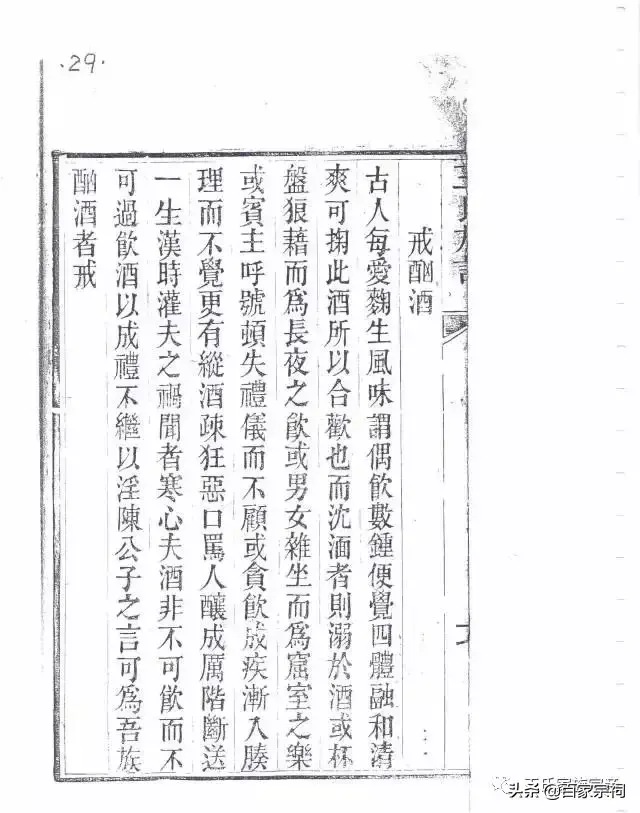 29.
戒酗酒
古人每愛麴生風味謂偶飮數鍾便覺四體融和清
爽可掬此酒所以合歡也而沈湎者則溺於酒或杯
盤狼藉而爲長夜之飮或男女雜坐而爲窟室之樂
或賓主呼號頓失禮儀而不顧或貪飮成疾漸入腠
理而不覺更有縱酒疎狂惡口罵人釀成厲階斷送
一生漢時灌夫之禍聞者寒心夫酒非不可飮而不
可過飮酒以成禮不繼以淫陳公子之言可爲吾族
酗酒者戒
王氏家族宗亲
头条 @百家宗祠